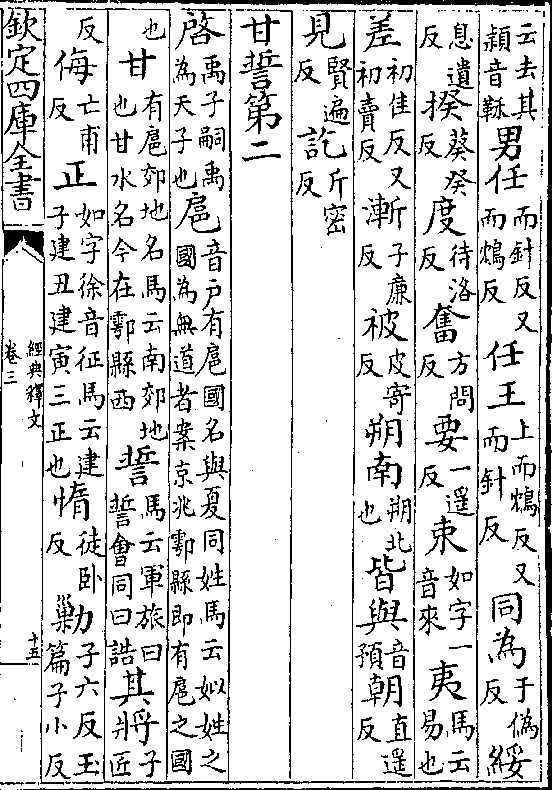 云去其穎音鞂男任而針反又而鴆反任王上而鴆反又而針反同為于偽反綏
息遺反揆葵癸反度待洛反奮方問反要一遥反束如字一音來夷馬云易也
差初佳反又初賣反漸子廉反被皮寄反朔南朔北也皆與音預朝直遥反
見賢遍反訖斤密反
甘誓第二
啓禹子嗣禹為天子也扈音户有扈國名與夏同姓馬云姒姓之國為無道者案京兆鄠縣即有扈之國
也甘有扈郊地名馬云南郊地也甘水名今在鄠縣西誓馬云軍旅曰誓會同曰誥其將子匠
反侮亡甫反正如字徐音征馬云建子建丑建寅三正也惰徒卧反勦子六反玉篇子小反
欽定四庫全書
經典釋文
卷三
十五